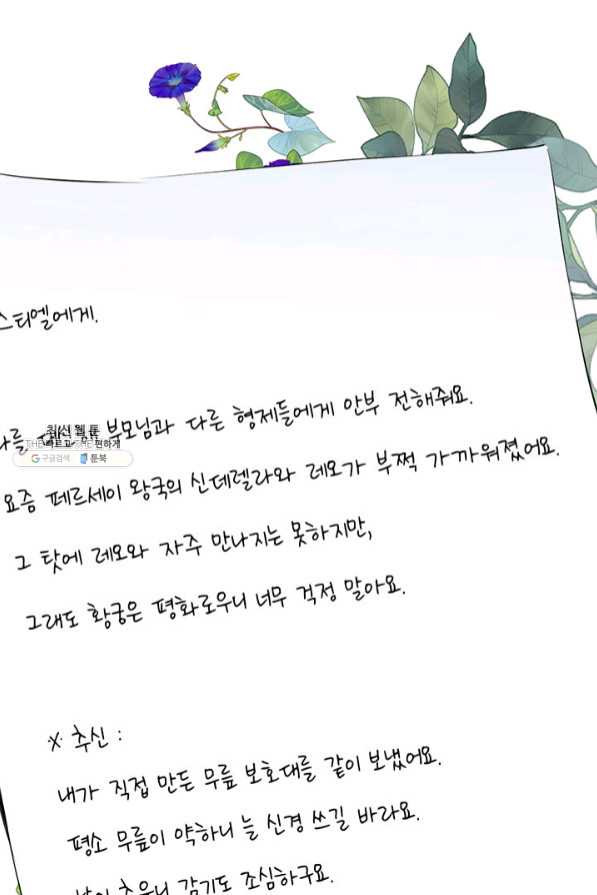 스티엘에게.
부모님과 다른 형제들에게 안부 전해줘요.
최신 웹툰
빠르고 편하게
구글검색 툰북
요즘 페르세이 왕국의 신데렐라와 레오가 부쩍 가까워졌어요.
그 탓에 레오와 자주 만나지는 못하지만,
그래도 황궁은 평화로우니 너무 걱정 말아요.
※ 추신 :
내가 직접 만든 무릎 보호대를 같이 보냈어요.
평소 무릎이 약하니 늘 신경 쓰길 바라요.
추우니 감기도 조심하구요.